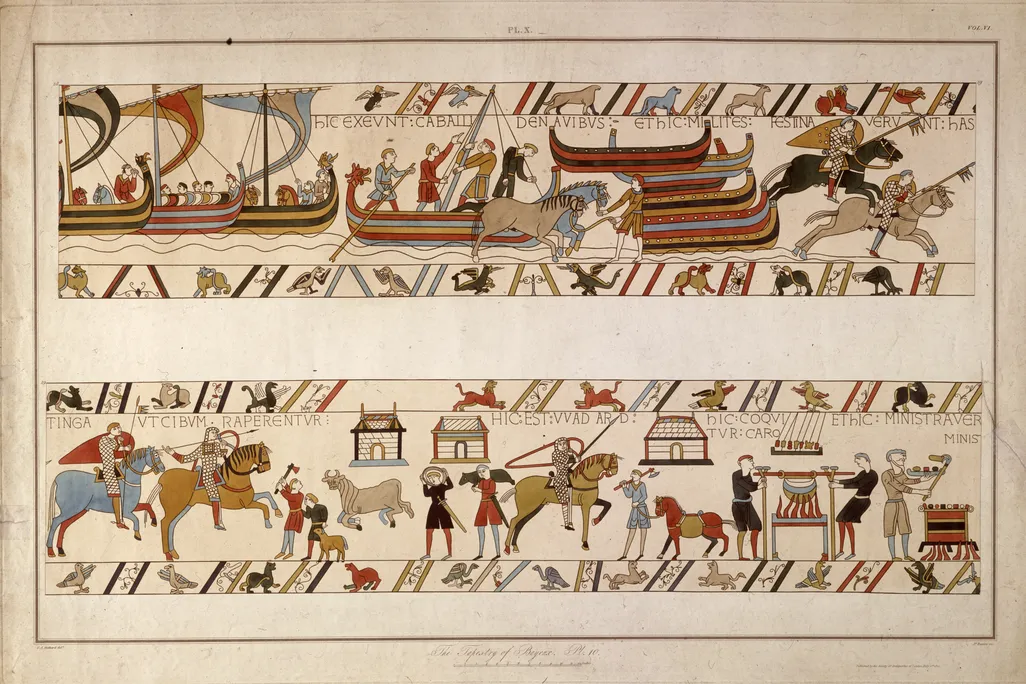 PL. X.
VOL. VI.
HIC EXEVNT: CABALLI DENAVIBVS: ETHIC: MILITES: FESTINAVERVNT: HAS
TINGA VTCIBVM· RAPERENTVR: HIC: EST: VVADARD: HIC: COQVI ETHIC: MINISTRAVER
TVR: CARO MINIS
The Tapestry of Bayeux. Pl. 10.